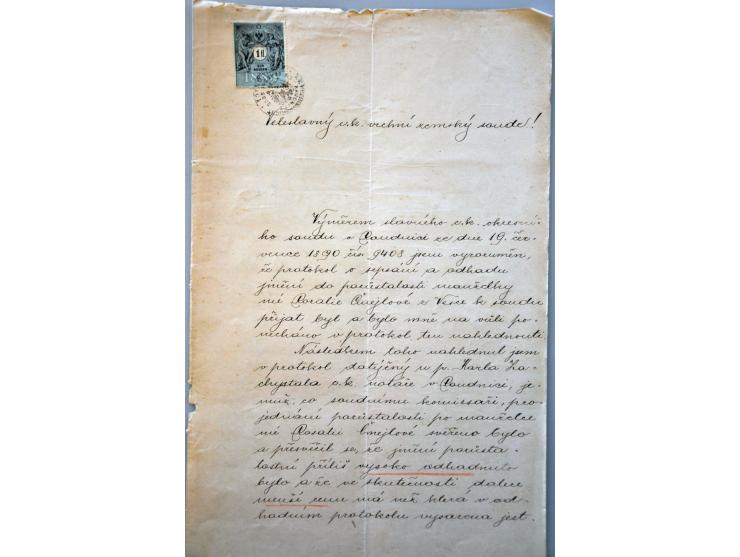 1888
Veleslavný c.k. vrchní zemský soude!
Výměrem slavného c.k. okresní-
ho soudu v Roudnici ze dne 19. čer-
vence 1890 čís. 9408 jsem vyrozuměn,
že protokol o sepsání a odhadu
jmění do pozůstalosti manželky
mé Rosalie Čmejlové z Vesce k soudu
přijat byl a bylo mně na vůli po-
necháno v protokol ten nahlednouti.
Následkem toho nahlednul jsem
v protokol dotýčný u p. Karla Za-
chystala c.k. notáře v Roudnici, je-
muž, co soudnímu komisaři, pro-
jednání pozůstalosti po manželce
mé Rosalii Čmejlové svěřeno bylo
a přesvěčil se, že jmění pozůsta-
lostní příliš vysoko odhadnuto
bylo a že ve skutečnosti daleko
menší cenu má než která v od-
hadním protokolu vysazena jest.